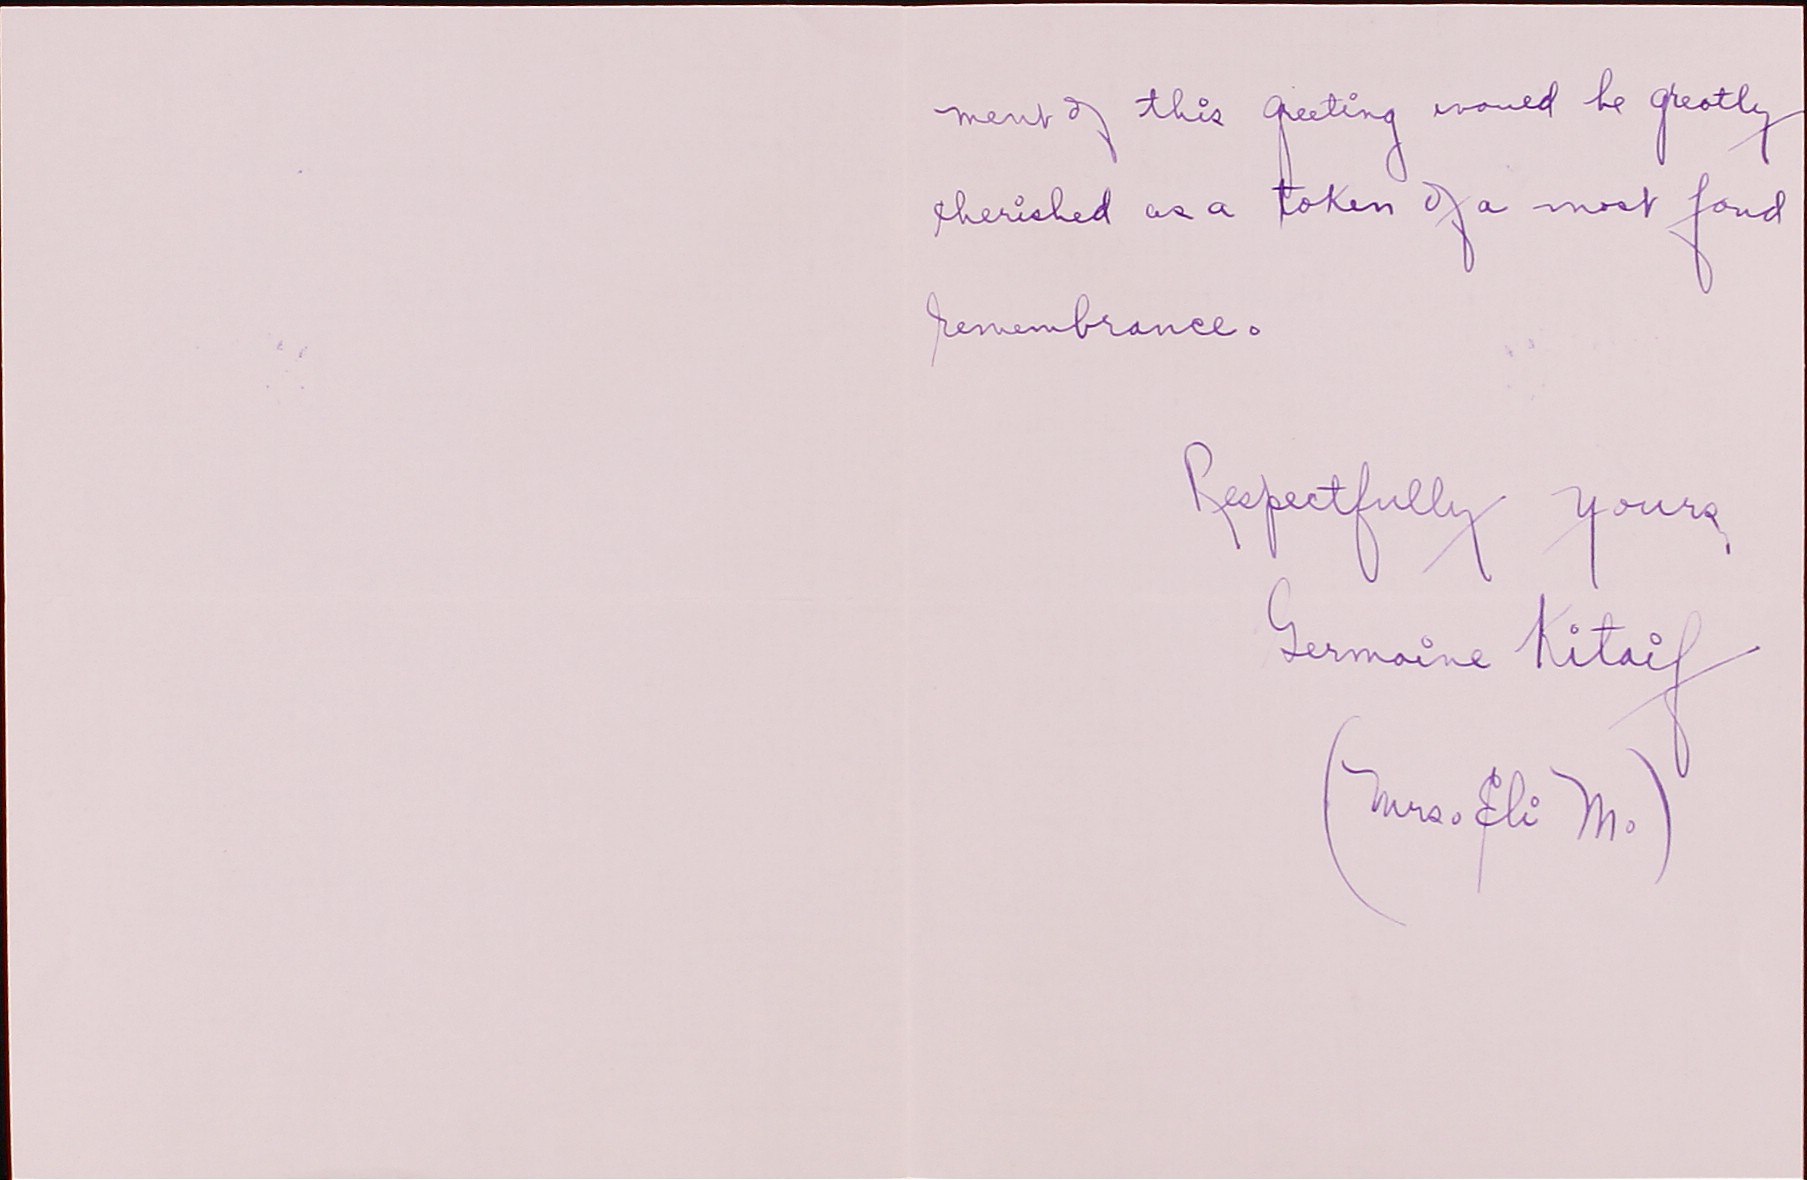 ment of this greeting would be greatly
cherished as a token of a most fond
remembrance.
Respectfully yours,
Germaine Kitaif
(Mrs. Eli M.)